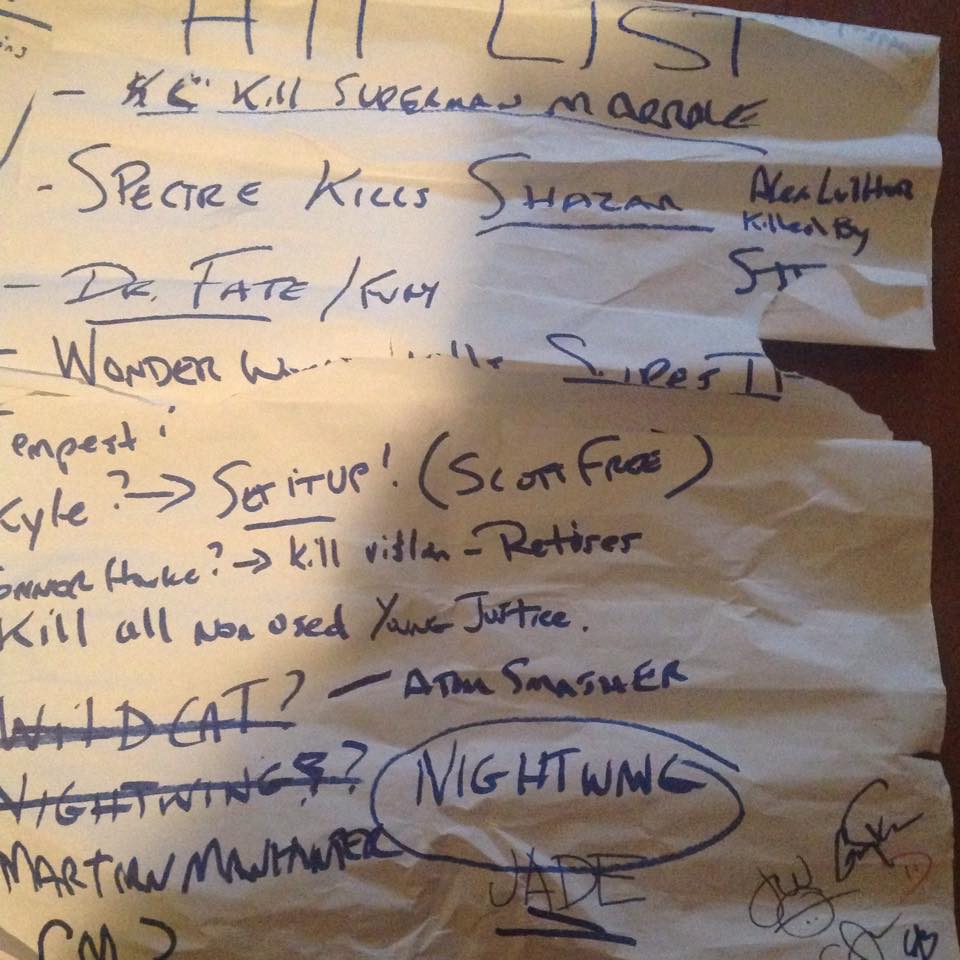 HIT LIST
- Kill Superman Marriage
- SPECTRE KILLS SHAZAM
Alex Luthor
Killed By
- DR. FATE / FURY
- WONDER
Tempest
Kyle ? → Set it UP! (SCOTT FREE)
Connor Hawke? → Kill villan - Retires
Kill all non used Young Justice.
WILDCAT? - ATOM SMASHER
NIGHTWING? NIGHTWING
MARTIAN MANHUNTER
JADE